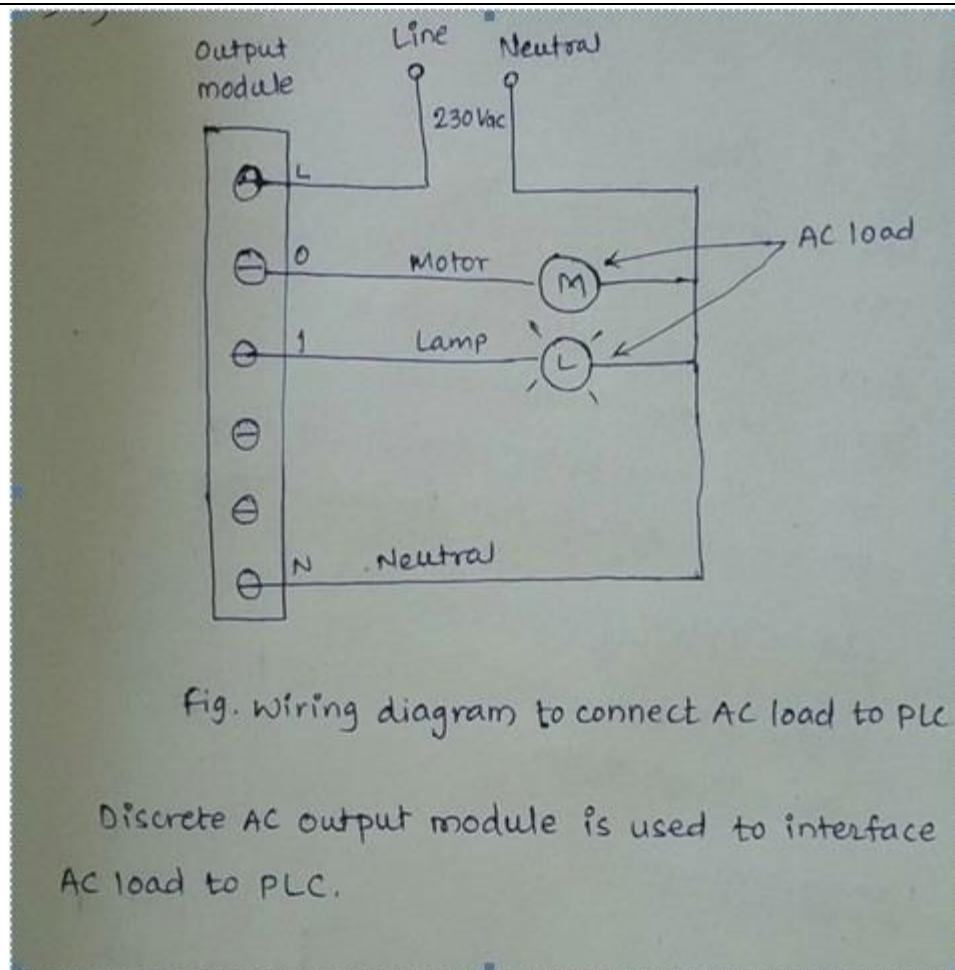 Output
module
Line
Neutral
230 Vac
L
0
Motor
M
AC load
1
Lamp
L
N
Neutral
Fig. Wiring diagram to connect AC load to PLC
Discrete AC output module is used to interface
AC load to PLC.